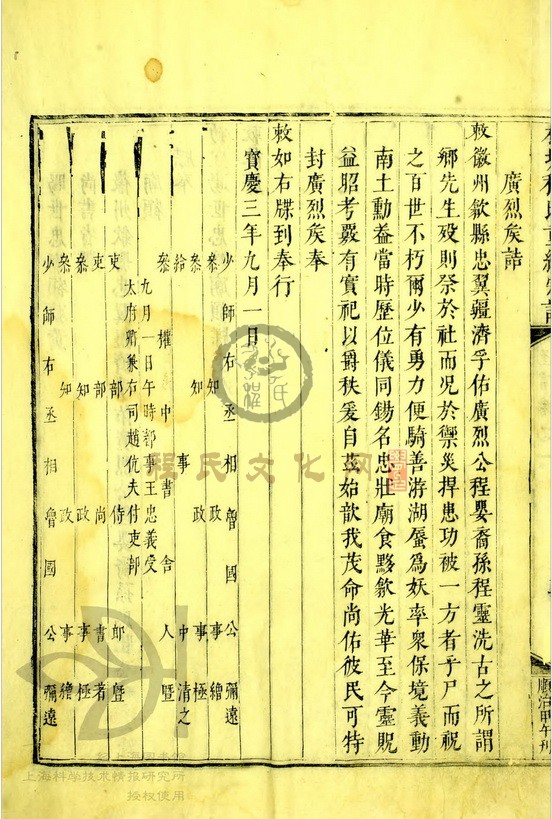 廣烈矦誥
敕徽州歙縣忠翼疆濟孚佑廣烈公程嬰裔孫程靈洗古之所謂
鄉先生歿則祭於社而况於禦災捍患功被一方者乎尸而祝
之百世不朽爾少有勇力便騎善游湖蜃爲妖率衆保境義動
南土勳葢當時歷位儀同錫名忠壯廟食黟歙光華至今靈貺
益昭考覈有實祀以爵秩爰自茲始歆我茂命尚佑彼民可特
封廣烈矦奉
敕如右牒到奉行
寶慶三年九月一日
少師右丞相魯國公 彌遠
參知政事 繒
參知政事 極
給事中 清之
參權中書舍人 暨
九月一日午時都事王忠義受
太府卿兼右司趙伉夫付吏部
吏部侍郎 暨
吏部尚書 著
參知政事 極
參知政事 繒
少師右丞相魯國公 彌遠
順治甲午刊
程氏文化网
上海图书馆
上海科学技术情报研究所
授权使用